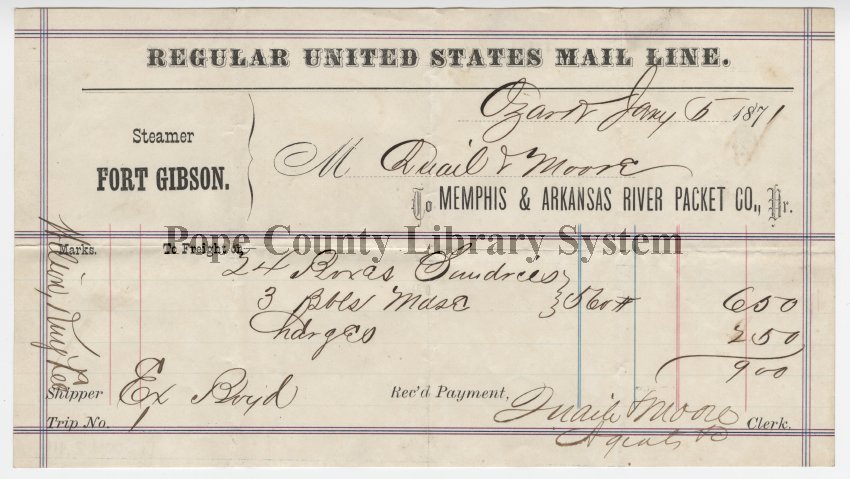 REGULAR UNITED STATES MAIL LINE.
Ozark Jany 5 1871
Steamer
FORT GIBSON.
M Quaile & Moore
To MEMPHIS & ARKANSAS RIVER PACKET CO., Dr.
Pope County Library System
Marks. To Freight on
24 Boxes Sundries
3 Bbls Mdse } 560# 6 50
Charges 2 50
9 00
Shipper Ex Boyd Rec'd Payment,
Quaile & Moore Clerk.
Trip No. 1
Agents